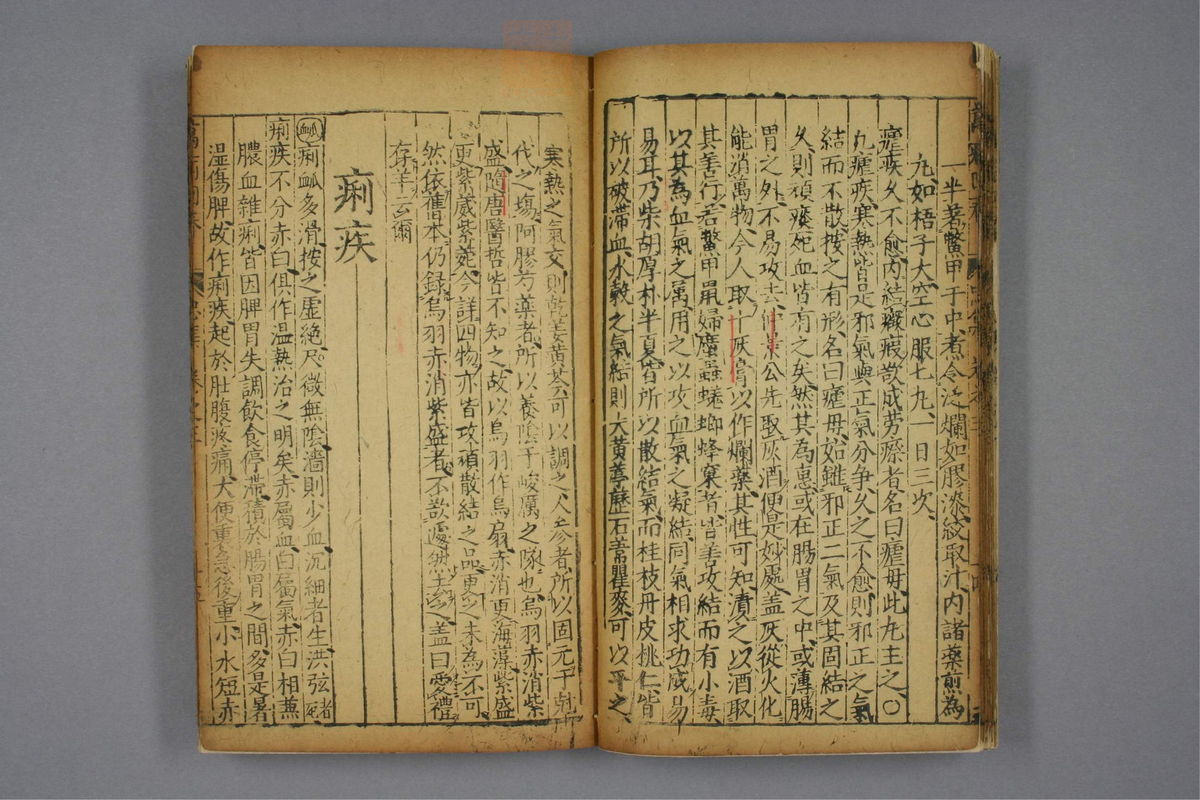 一半著鱉甲于中煮令泛爛如膠漆絞取汁內諸藥煎為
丸如梧子大空心服七丸一日三次
瘧疾久不愈內結癥瘕欲成勞瘵者名曰瘧母此丸主之〇
凡瘧疾寒熱皆是邪氣與正氣分爭久之不愈則邪正之氣
結而不散按之有形名曰瘧母始雖邪正二氣及其固結之
久則頑痰死血皆有之矣然其為患或在腸胃之中或薄腸
胃之外不易攻去仲景公先取灰酒便是妙處蓋灰從火化
能消萬物今人取灰以作爛藥其性可知漬之以酒取
其善行若鱉甲鼠婦䗪蟲蜣螂蜂窠者皆善攻結而有小毒
以其為血氣之屬用之以攻血氣之凝結同氣相求功成易
易耳乃柴胡厚朴半夏皆所以散結氣而桂枝丹皮桃仁皆
所以破滯血水穀之氣結則大黃葶藶石葦瞿麥可以平之
寒熱之氣交則乾姜黃芩可以調之人參者所以固元于
伐之場阿膠芍藥者所以養陰于峻厲之隊也烏羽赤消紫
盛隋唐醫哲皆不知之故以烏羽作烏扇赤消更海藻紫盛
更紫葳紫菀今詳四物亦皆攻頑散結之品更之未為不可
然依舊本仍錄烏羽赤消紫盛者不欲遽然去之蓋曰愛禮
存羊云爾
痢疾
痢疾多滑按之虛絕尺微無陰濇則少血沉細者生洪弦者死
痢疾不分赤白俱作溫熱治之明矣赤屬血白屬氣赤白相兼
膿血雜痢皆因脾胃失調飲食停滯積於腸胃之間多是暑
濕傷脾故作痢疾起於肚腹疼痛大便重急後重小水短赤